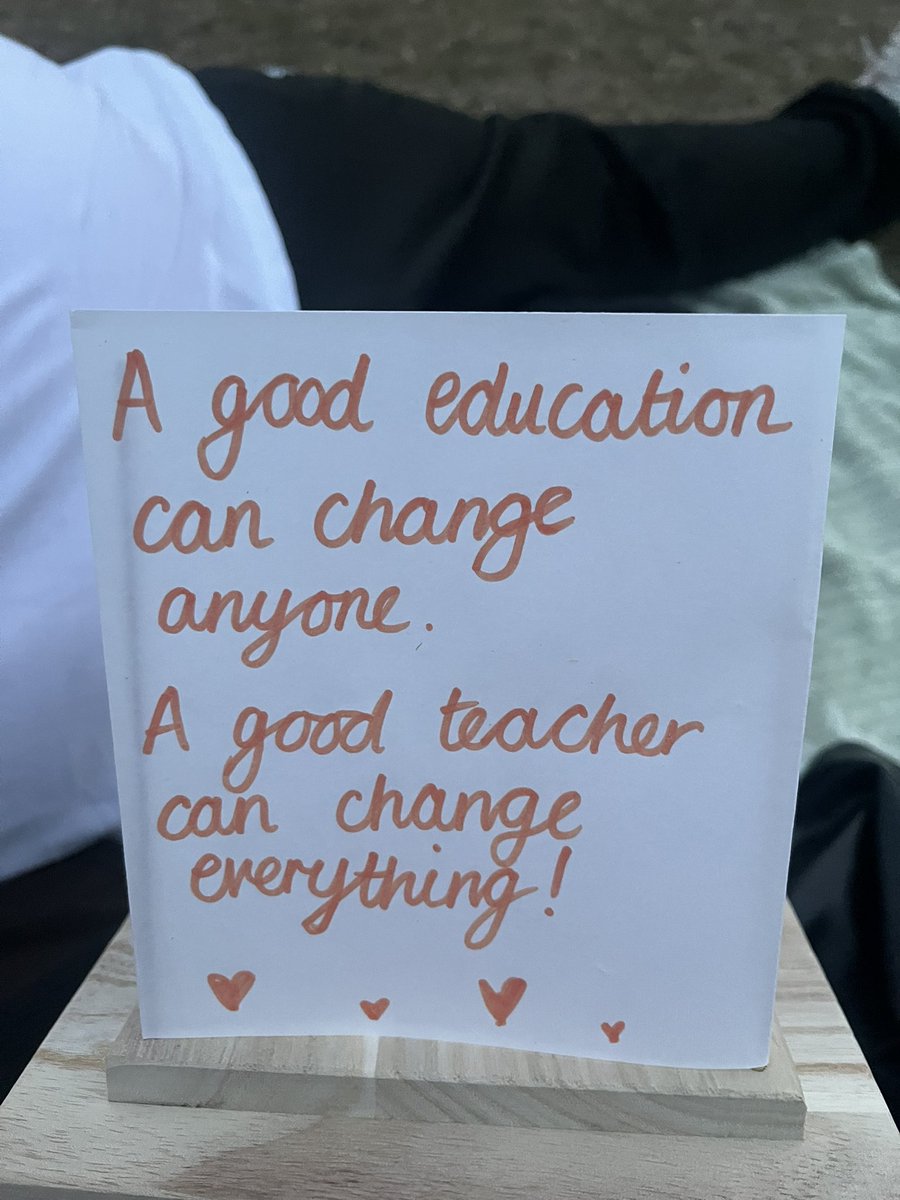 A good education
can change
anyone.
A good teacher
can change
everything!